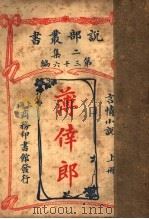 說部叢書
二集
第三十六編
言情小說 上冊
薄倖郎
商務印書館發行